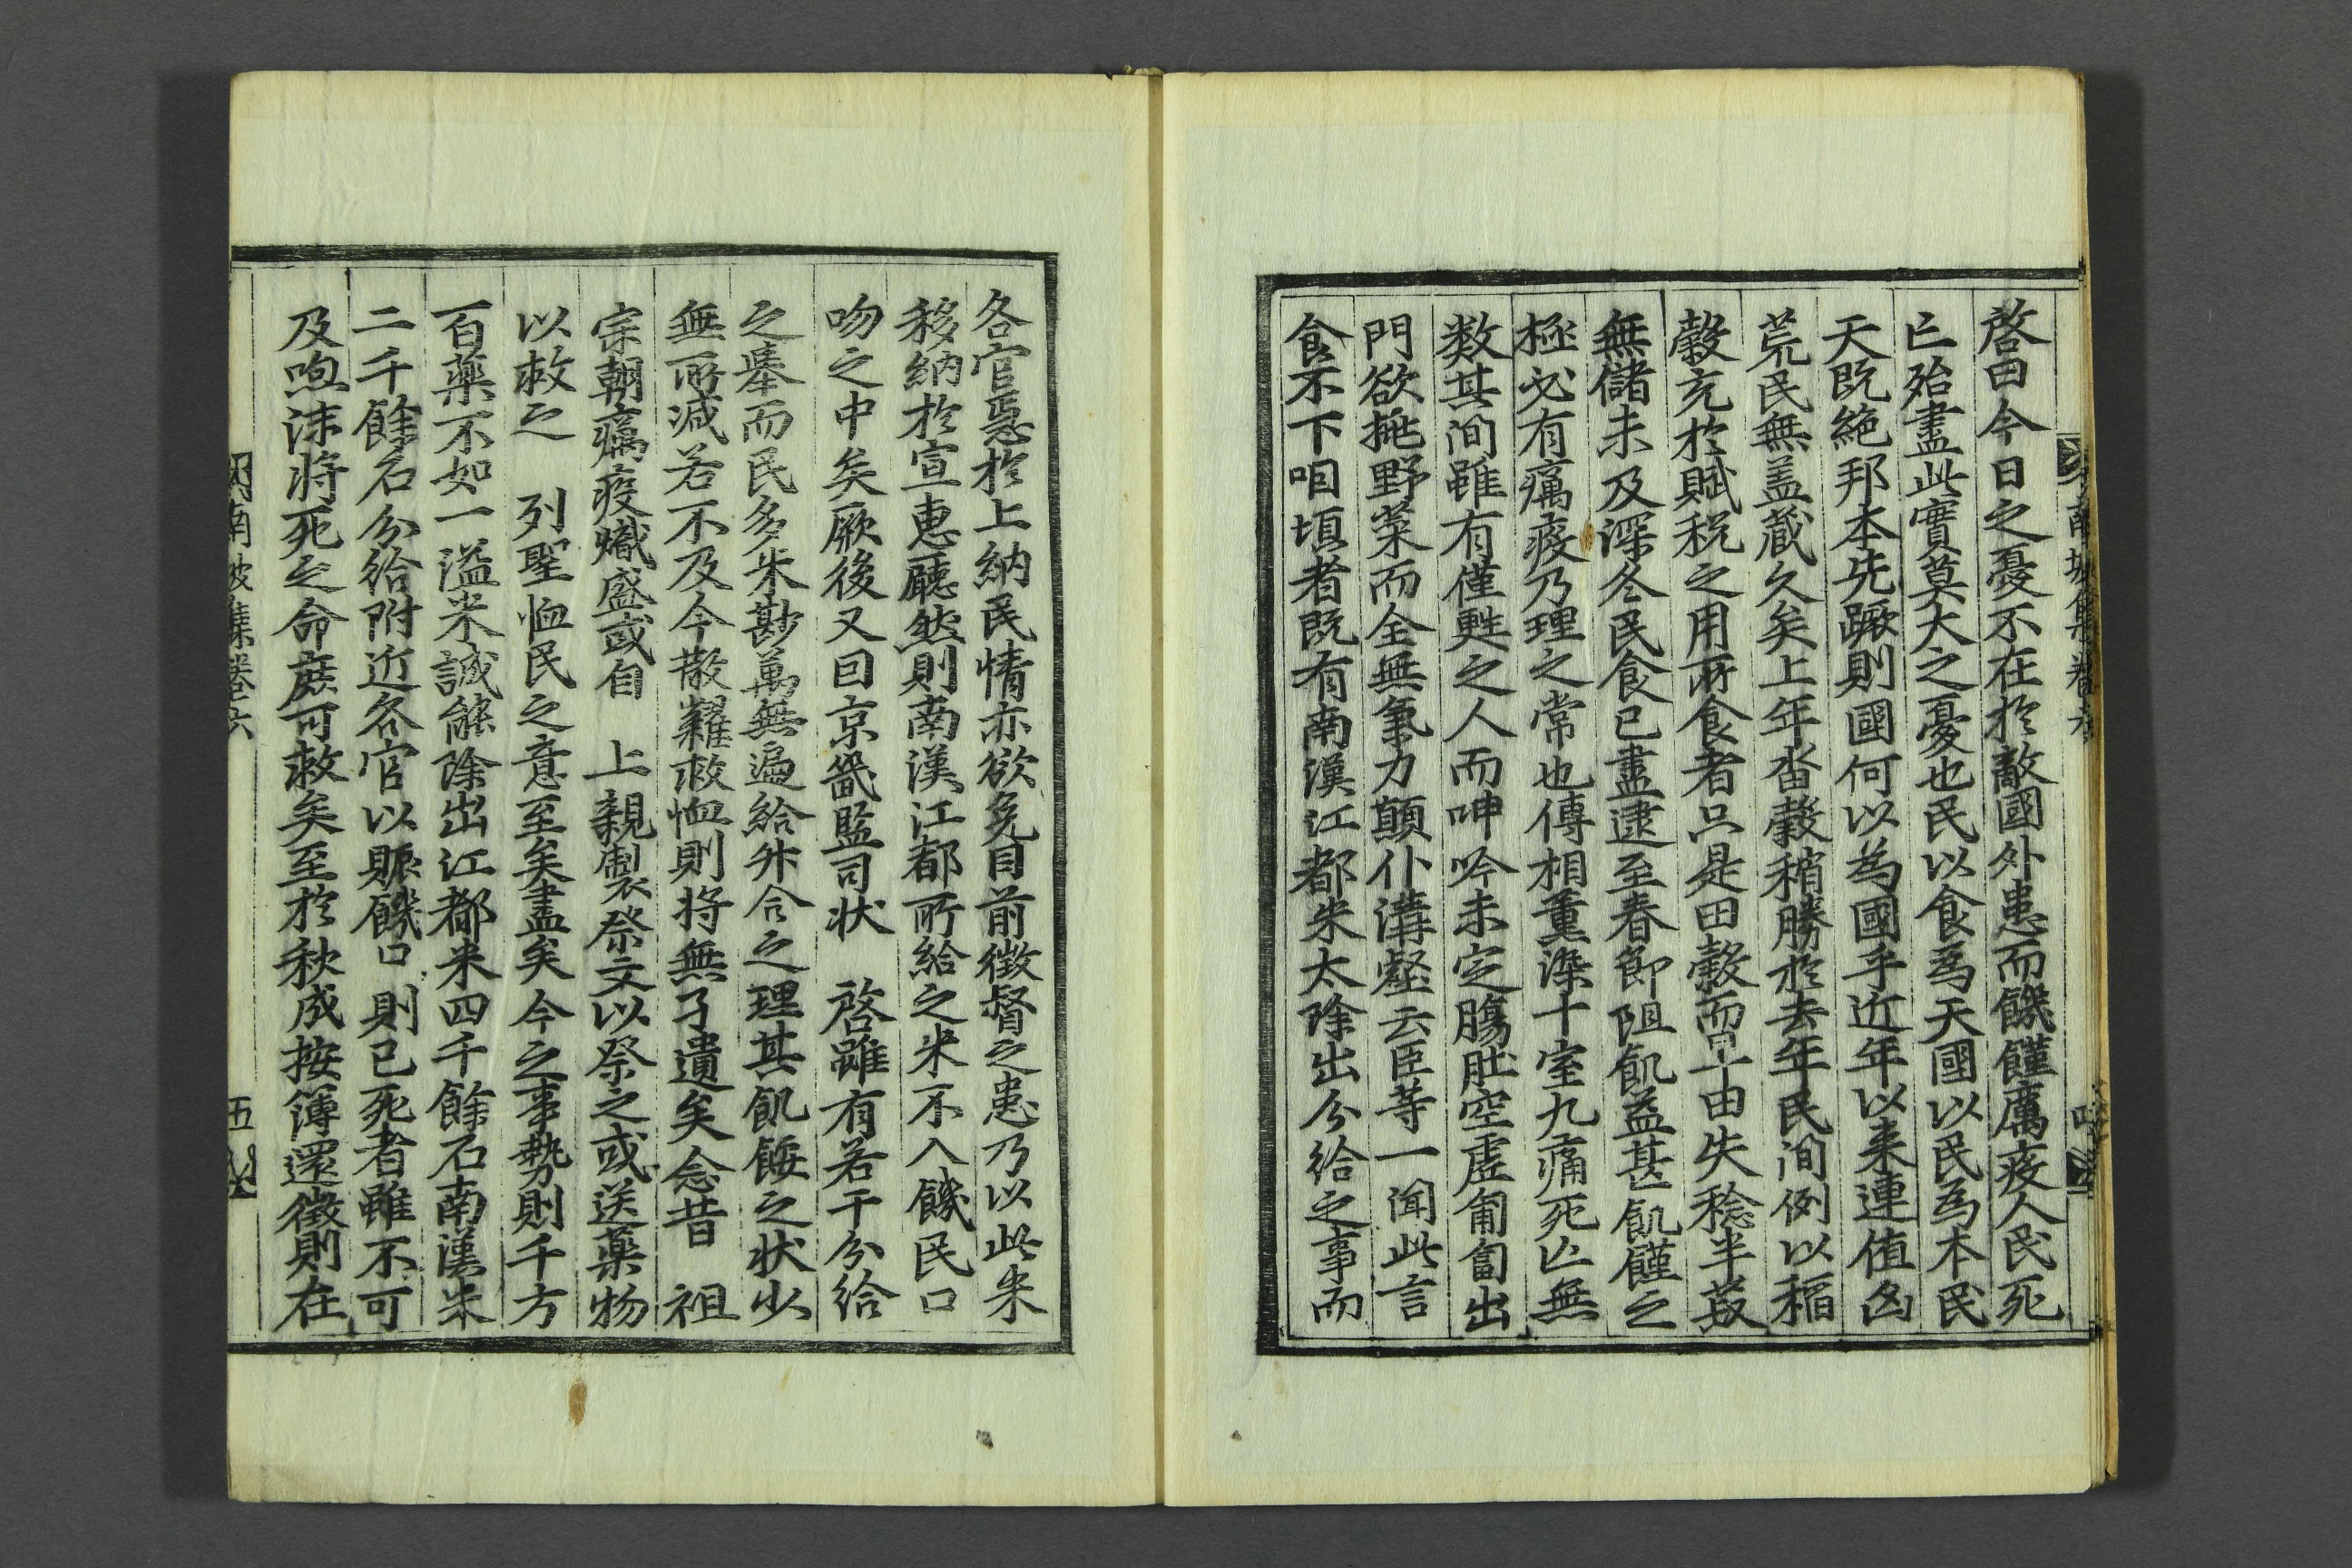 啓曰今日之憂不在於敵國外患而饑饉厲疫人民死
亡殆盡此實莫大之憂也民以食爲天國以民爲本民
天既絶邦本先蹶則國何以為國乎近年以来連値凶
荒民無盖蔵久矣上年畓穀稍勝於去年民间例以稲
穀充於賦税之用所食者只是田穀而田由失稔半菽
無儲未及深冬民食已盡逮至春節阻飢益甚飢饉之
極必有癘疫乃理之常也傳相薫染十室九痛死亡無
数其间雖有僅甦之人而呻吟未定腸肚空虚匍匐出
門欲挑野菜而全無氣力顛仆溝壑云臣等一闻此言
食不下咽頃者既有南漢江都米太除出分給之事而
各官惡於上納民情亦欲免目前徴督之患乃以此米
移納於宣惠廳然則南漢江都所給之米不入饑民口
吻之中矣厥後又因京畿監司状 啓雖有若干分給
之擧而民多米尠萬無遍給升合之理其飢餒之状少
無所减若不及今散糶救恤則将無孑遺矣念昔 祖
宗朝癘疫熾盛或自 上親製祭文以祭之或送薬物
以救之 列聖恤民之意至矣盡矣今之事勢則千方
百薬不如一溢米誠能除出江都米四千餘石南漢米
二千餘石分給附近各官以賑饑口則已死者雖不可
及呴沫将死之命庶可救矣至於秋成按簿還徴則在
南坡集卷六
五